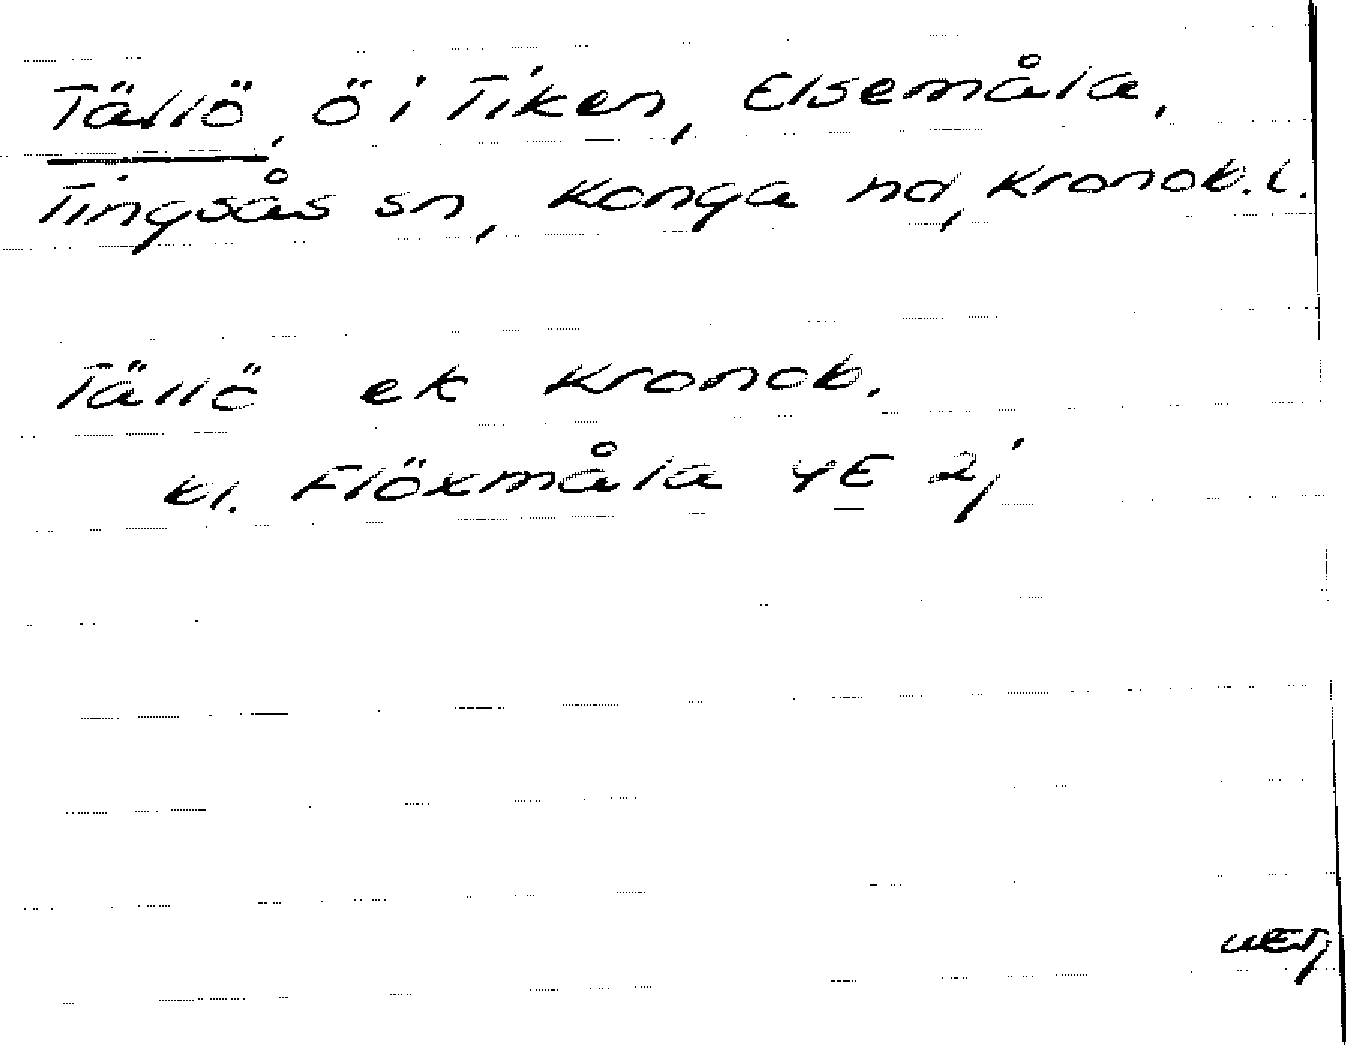 Tällö, ö i Tiken, Elsemåla,
Tingsås sn, Konga hd, Kronob. l.
Tällö ek Kronob.
bl. Flöxmåla 4E 2j